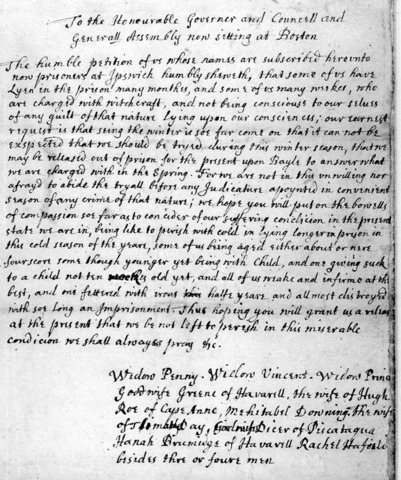 To the Honourable Governer and Councell and
Generall Assembly now sitting at Boston
The humble petition of us whose names are subscribed hereunto
now prisoners at Ipswich humbly sheweth, that some of us have
Lyen in the prison many months, and some of us many weekes, who
are charged with witchcraft, and not being conscious to our selves
of any guilt of that nature lying upon our consciences; our earnest
request is that seing the winter is soe far come on that it can not be
exspected that we should be tryed during this winter season, that we
may be released out of prison for the present upon Bayle to answer what
we are charged with in the Spring. For we are not in this unwilling nor
afrayd to abide the tryall before any Judicature apoynted in convenient
season of any crime of that nature; we hope you will put on the bowells
of compassion soe far as to concider of our suffering condicion in the present
state we are in, being like to perish with cold in lying longer in pryson in
this cold season of the yeare, some of us being aged either about or nere
fourscore some though younger yet being with Child, and one giving suck
to a child not ten weekes old yet, and all of us weake and infirme at the
best, and one fettered with irons this halfe yeare and allmost distroyed
with soe long an Imprisonment. Thus hoping you will grant us a releas
at the present that we be not left to perish in this miserable
condicion we shall alwayes pray &c.
Widow Penny. Widow Vincent. Widow Prince
Goodwife Greene of Havarill, the wife of Hugh
Roe of Cape Anne, Mehitabel Downing. the wife
of Day, Goodwife Dicer of Piscataqua
Hanah Brumidge of Havarill Rachel Hafield
besides thre or foure men